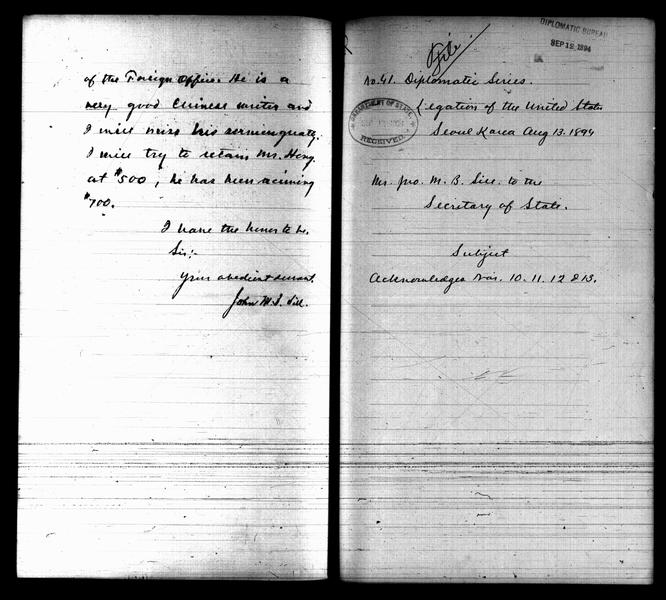 of the Foreign Office. He is a
very good Chinese writer and
I will miss his services greatly.
I will try to retain Mr. Hong
at $500, he has been receiving
$700.
I have the honor to be.
Sir:-
Your obedient servant.
John M. B. Sill.
File
DIPLOMATIC BUREAU
SEP 12, 1894
No. 41. Diplomatic Series.
Legation of the United States
Seoul Korea Aug 13. 1894
DEPARTMENT OF STATE
RECEIVED
Mr. Jno. M. B. Sill. to the
Secretary of State.
Subject
Acknowledges Nos. 10. 11. 12 & 13.